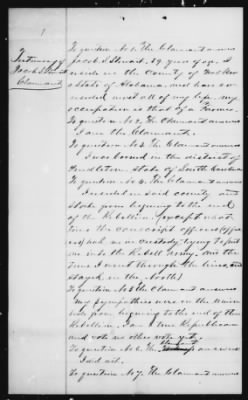 1
Testimony of
Jacob Stuart
Claimant
To question No 1. The Claimant answers
Jacob Stuart, 59 years of age, I
reside in the County of
State of Alabama, and have so
resided most all of my life. my
occupation is that of a Farmer.
To question No 2. The Claimant answers
I am the Claimant.
To question No 3. The Claimant answers
I was born in the district of
Pendleton, State of South Carolina
To question No 4. The Claimant answers
I resided in said county and
State from begining to the end
of the Rebellion (except what
time the conscript officers
had me in custody trying to put
me into the Rebell Army. and the
time I went through the lines and
stayed in the north)
To question No 5 the Claimant answers
My sympathies were on the Union
side from begining to the end of the
Rebellion. I am a true Republican
and vote no other vote yet.
To question No 6. The Claimant answers
I did not.
To question No 7. The Claimant answers